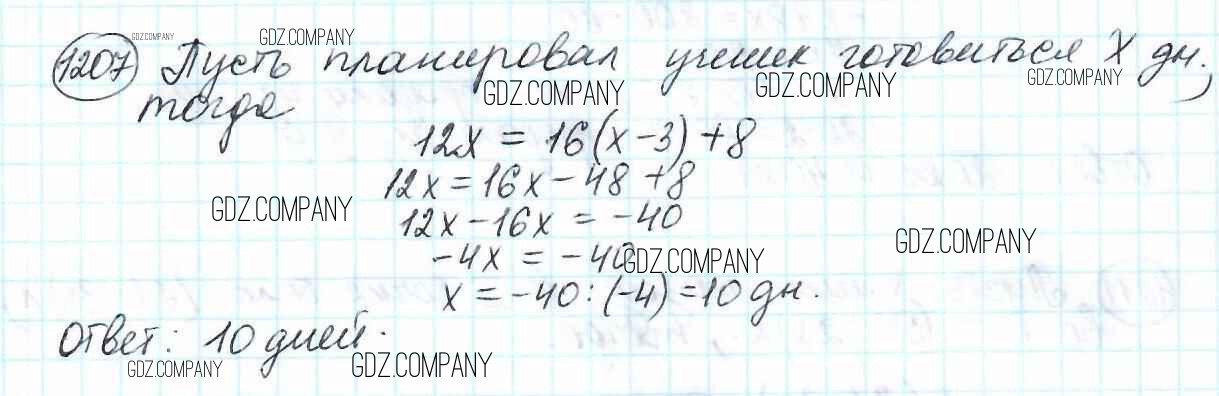 GDZ.COMPANY GDZ.COMPANY
1207 Пусть планировал ученик готовиться X дн.,
GDZ.COMPANY GDZ.COMPANY
тогда
12x = 16(x - 3) + 8
12x = 16x - 48 + 8
GDZ.COMPANY
12x - 16x = -40
GDZ.COMPANY
-4x = -40
GDZ.COMPANY
x = -40 : (-4) = 10 дн.
Ответ: 10 дней.
GDZ.COMPANY GDZ.COMPANY